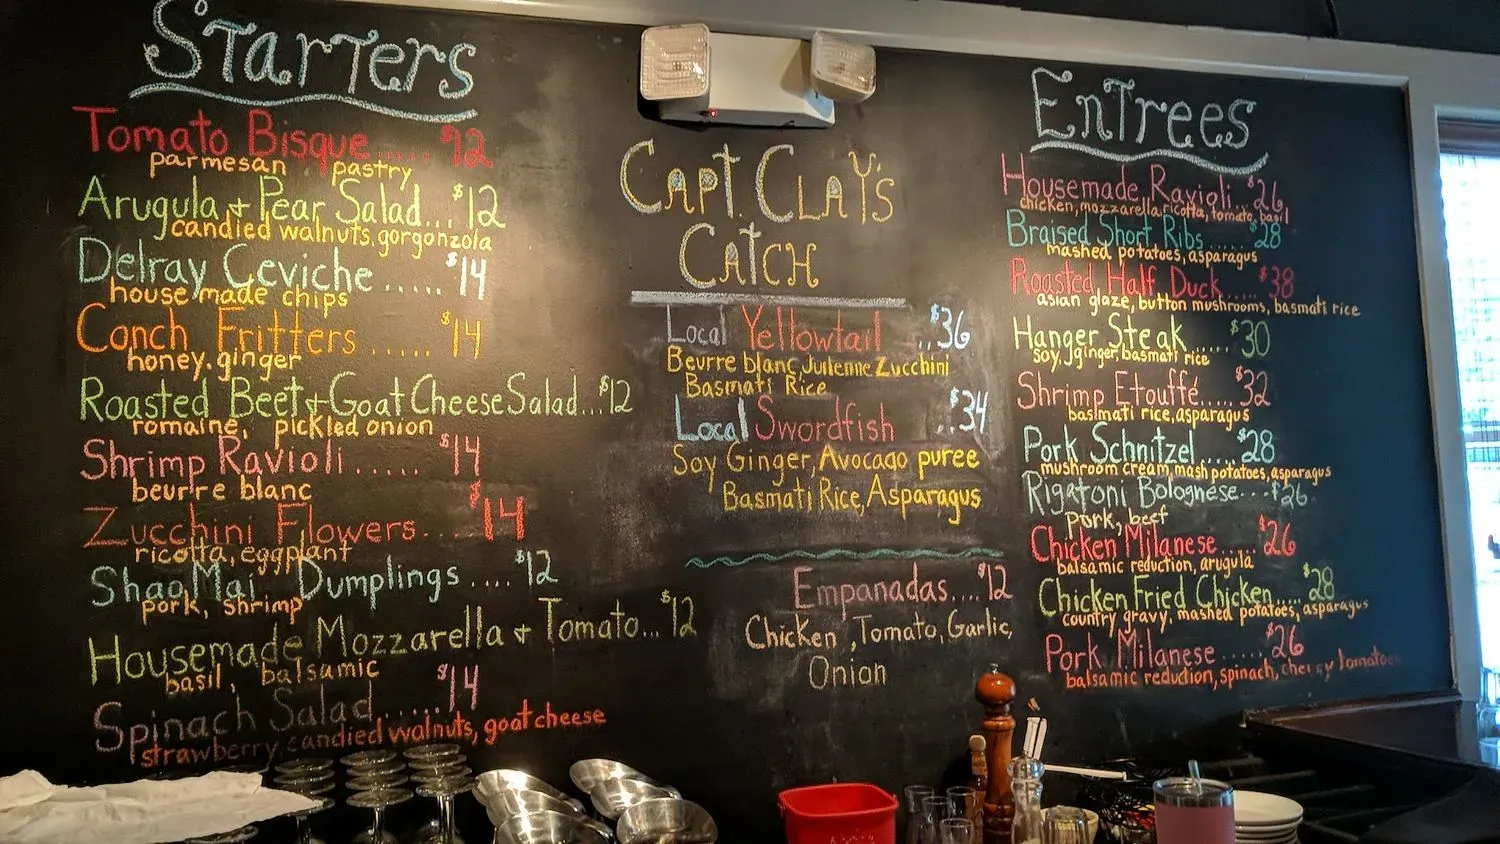 Starters
Tomato Bisque..... $12
parmesan pastry
Arugula + Pear Salad...$12
candied walnuts, gorgonzola
Delray Ceviche ..... $14
house made chips
Conch Fritters ..... $14
honey, ginger
Roasted Beet + Goat Cheese Salad...$12
romaine, pickled onion
Shrimp Ravioli ..... $14
beurre blanc
Zucchini Flowers... $14
ricotta, eggplant
Shao Mai Dumplings .... $12
pork, shrimp
Housemade Mozzarella + Tomato... $12
basil, balsamic
Spinach Salad ...... $14
strawberry, candied walnuts, goat cheese
Capt. Clay's
Catch
Local Yellowtail ..$36
Beurre blanc, Julienne Zucchini
Basmati Rice
Local Swordfish ..$34
Soy Ginger, Avocado puree
Basmati Rice, Asparagus
Empanadas....$12
Chicken, Tomato, Garlic,
Onion
Entrees
Housemade Ravioli..$26
chicken, mozzarella, ricotta, tomato, basil
Braised Short Ribs ..... $28
mashed potatoes, asparagus
Roasted Half Duck ..... $38
asian glaze, button mushrooms, basmati rice
Hanger Steak ..... $30
soy, ginger, basmati rice
Shrimp Etouffé.... $32
basmati rice, asparagus
Pork Schnitzel ..... $28
mushroom cream, mash potatoes, asparagus
Rigatoni Bolognese...$26
pork, beef
Chicken Milanese .... $26
balsamic reduction, arugula
Chicken Fried Chicken.....$28
country gravy, mashed potatoes, asparagus
Pork Milanese ..... $26
balsamic reduction, spinach, cherry tomatoes